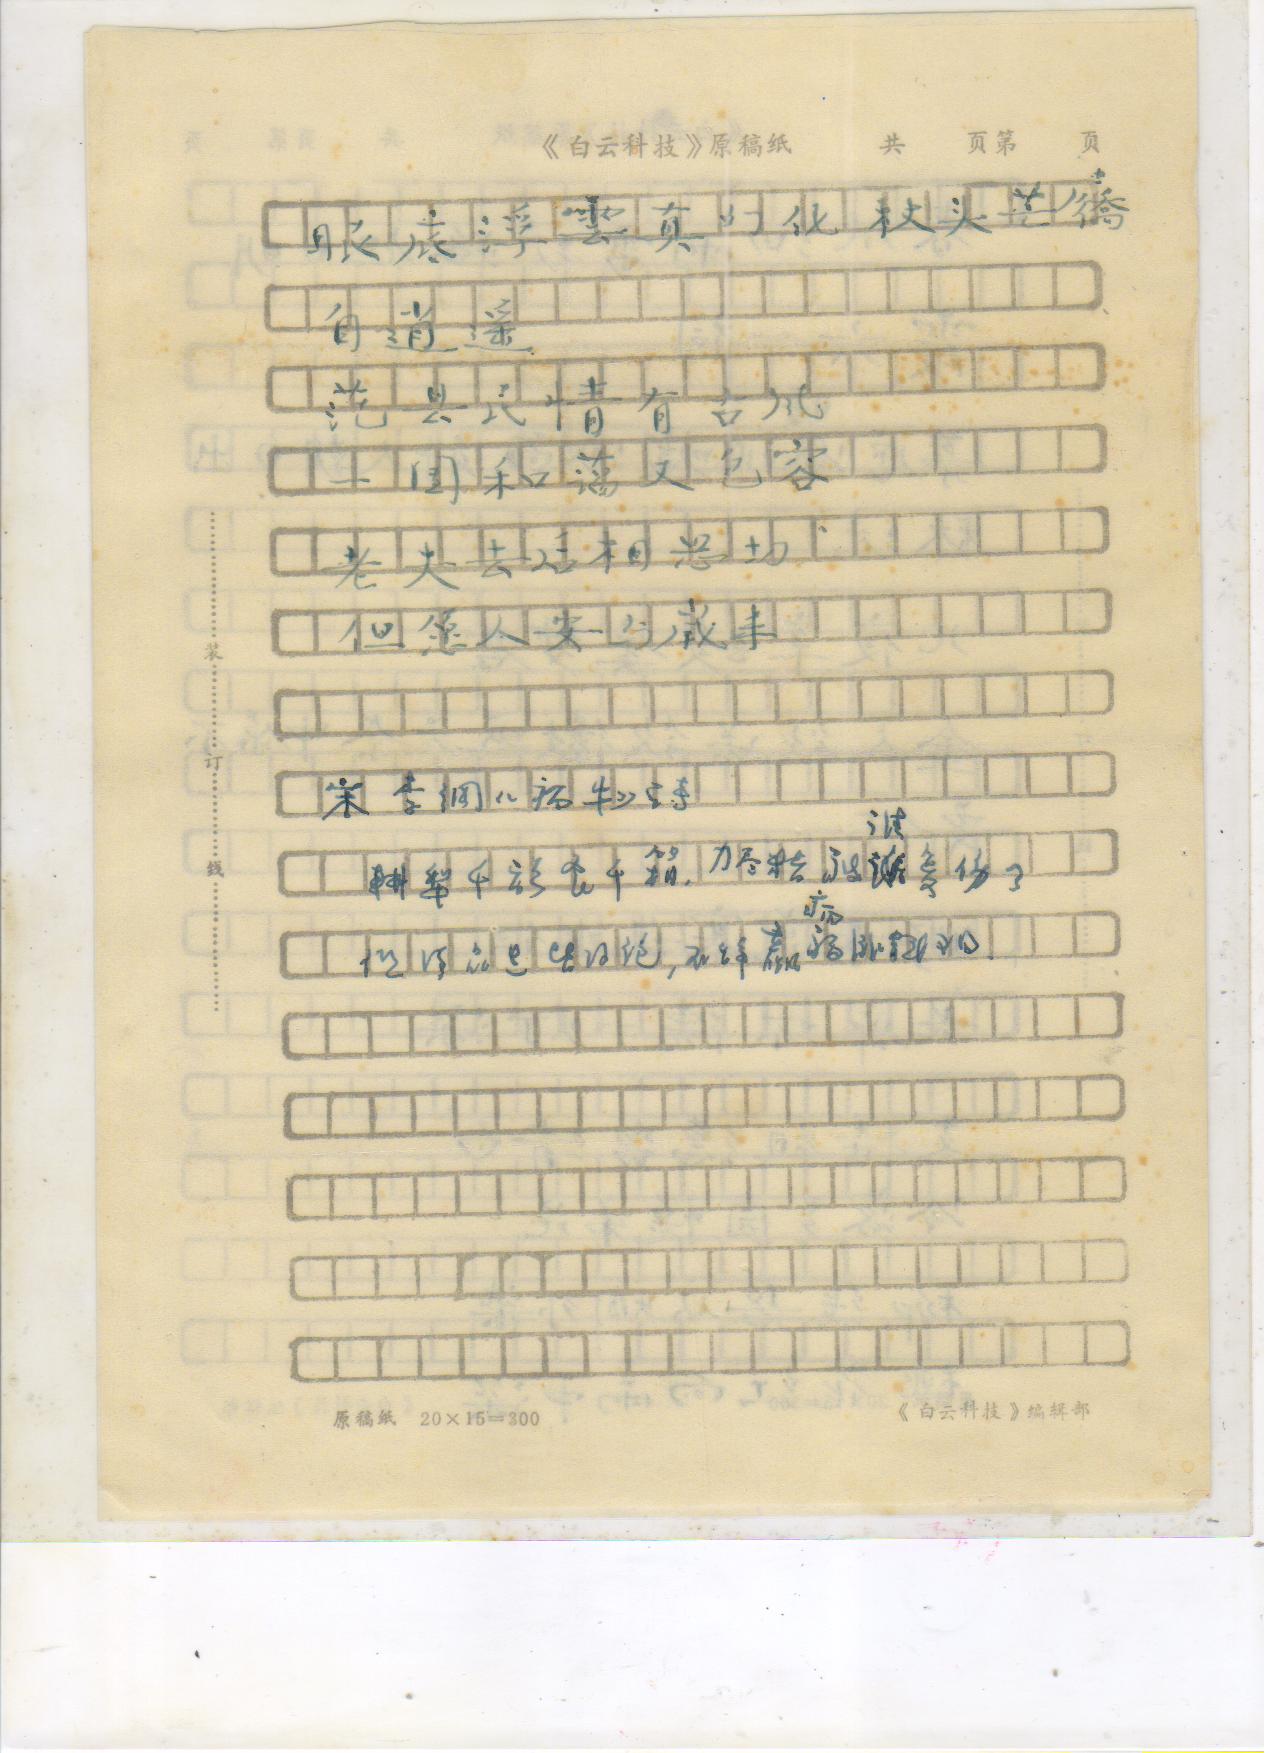 《白云科技》原稿纸 共 页第 页
眼底浮雲真幻化 杖头芒
自逍遥
范县民情有古风
一团和蔼又包容
老夫去后相思切
但愿人安与岁丰
装
订
线
宋 李纲《病牛》诗
谁
耕犁千亩实千箱,力尽筋疲 复伤?
病
但得众生皆得饱,不辞羸 卧残阳.
原稿纸 20×15=300 《白云科技》编辑部